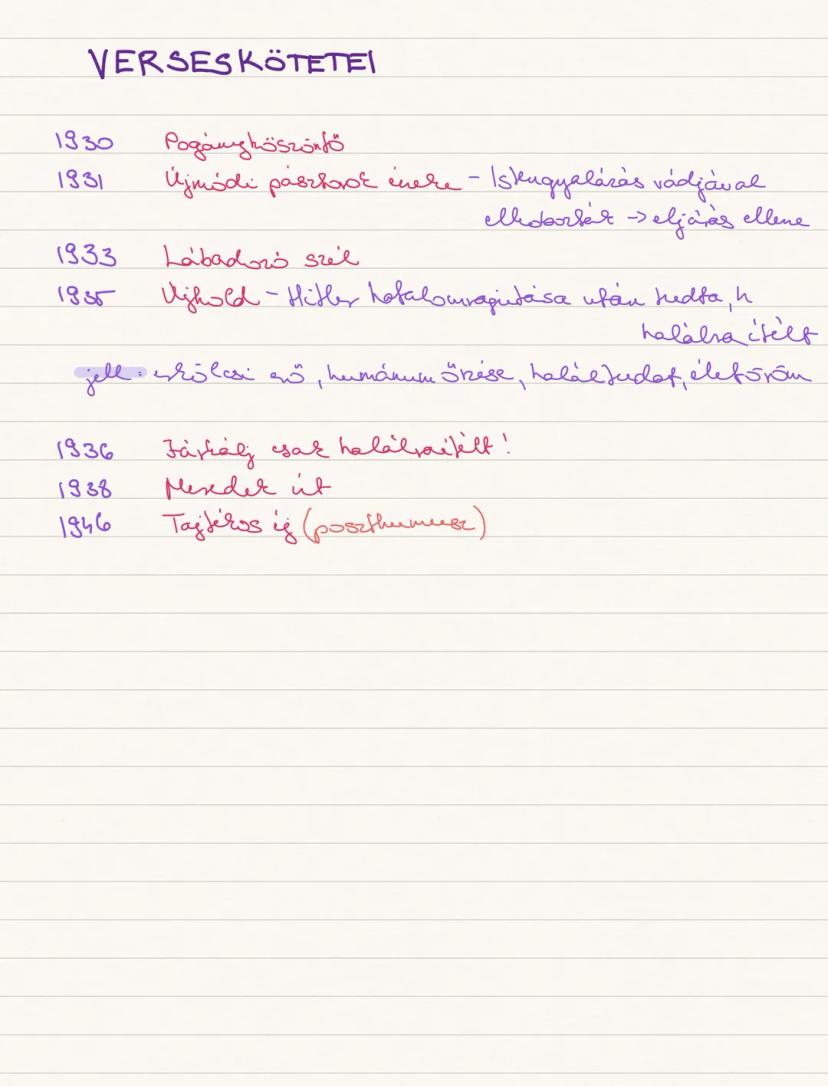 VERSESKÖTETEI
1930 Pogányköszöntő
1931 Újmódi pásztorok éneke - Istengyalázás vádjával
elkobozták → eljárás ellene
1933 Lábadozó szél
1935 Újhold - Hitler hatalomragadása után tudta, h
halálra ítélt
jell: erkölcsi erő, humánum őrzése, haláltudat, életöröm
1936 Járkálj csak halálraítélt!
1938 Meredek út
1946 Tajtékos ég (poszthumusz)